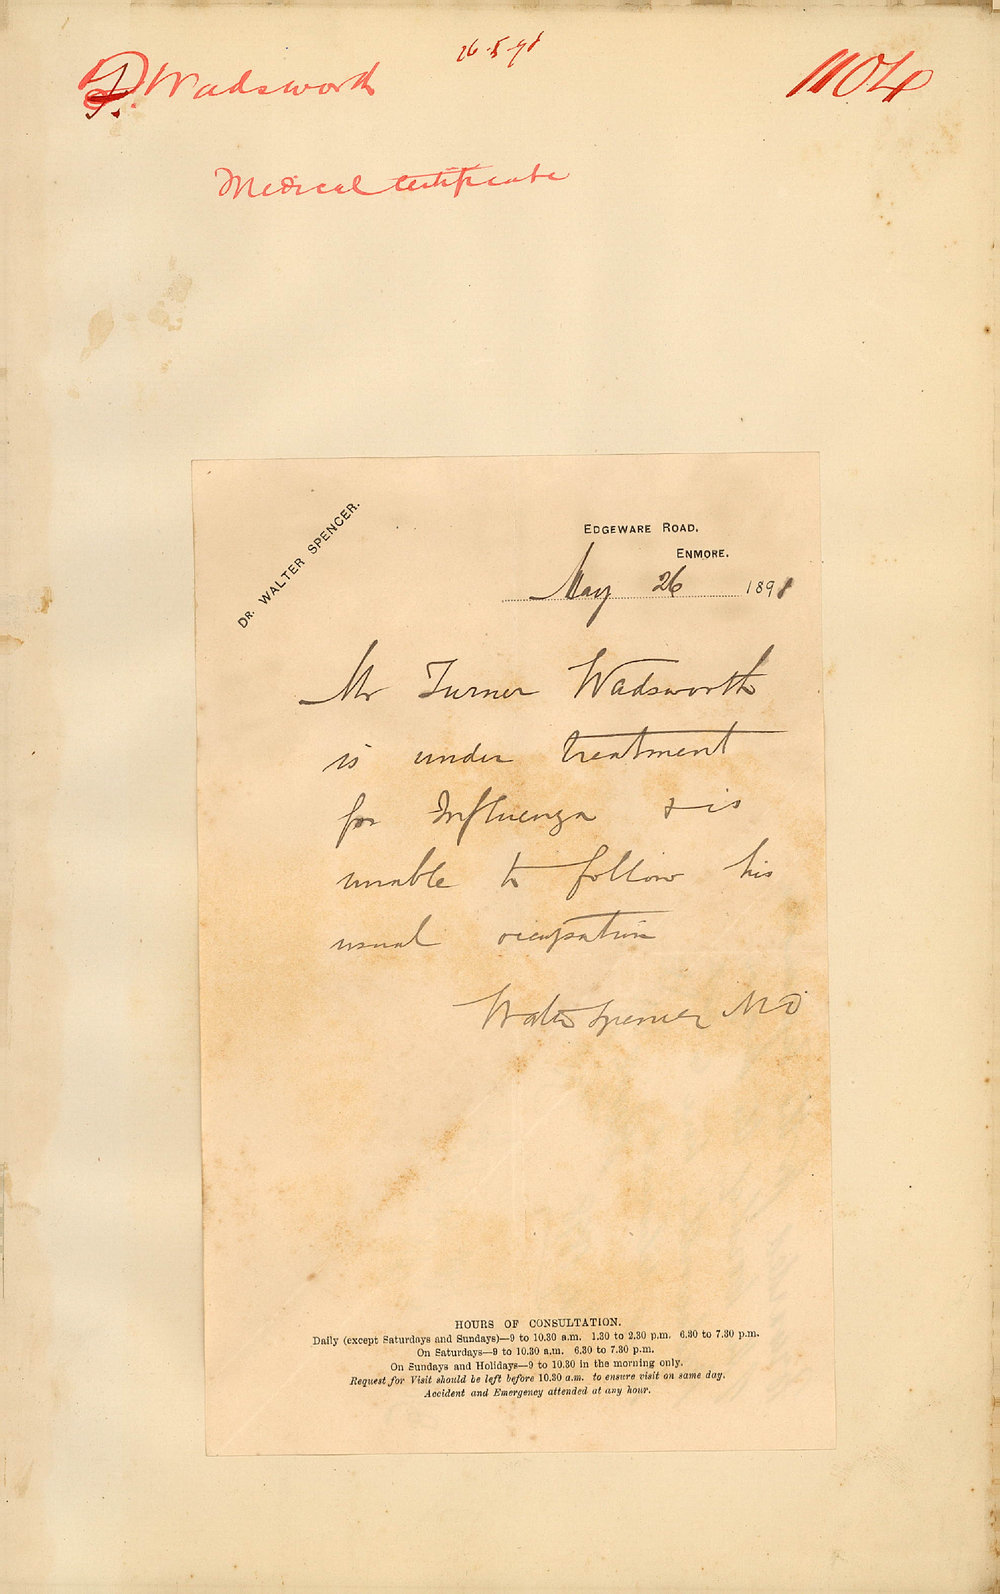 26.5.91
T. Wadsworth
1104
Medical Certificate
DR. WALTER SPENCER.
EDGEWARE ROAD,
ENMORE.
May 26 1891
Mr Turner Wadsworth
is under treatment
for Influenza & is
unable to follow his
usual occupation
Walter Spencer MD
HOURS OF CONSULTATION.
Daily (except Saturdays and Sundays)—9 to 10.30 a.m. 1.30 to 2.30 p.m. 6.30 to 7.30 p.m.
On Saturdays—9 to 10.30 a.m. 6.30 to 7.30 p.m.
On Sundays and Holidays—9 to 10.30 in the morning only.
Request for Visit should be left before 10.30 a.m. to ensure visit on same day.
Accident and Emergency attended at any hour.